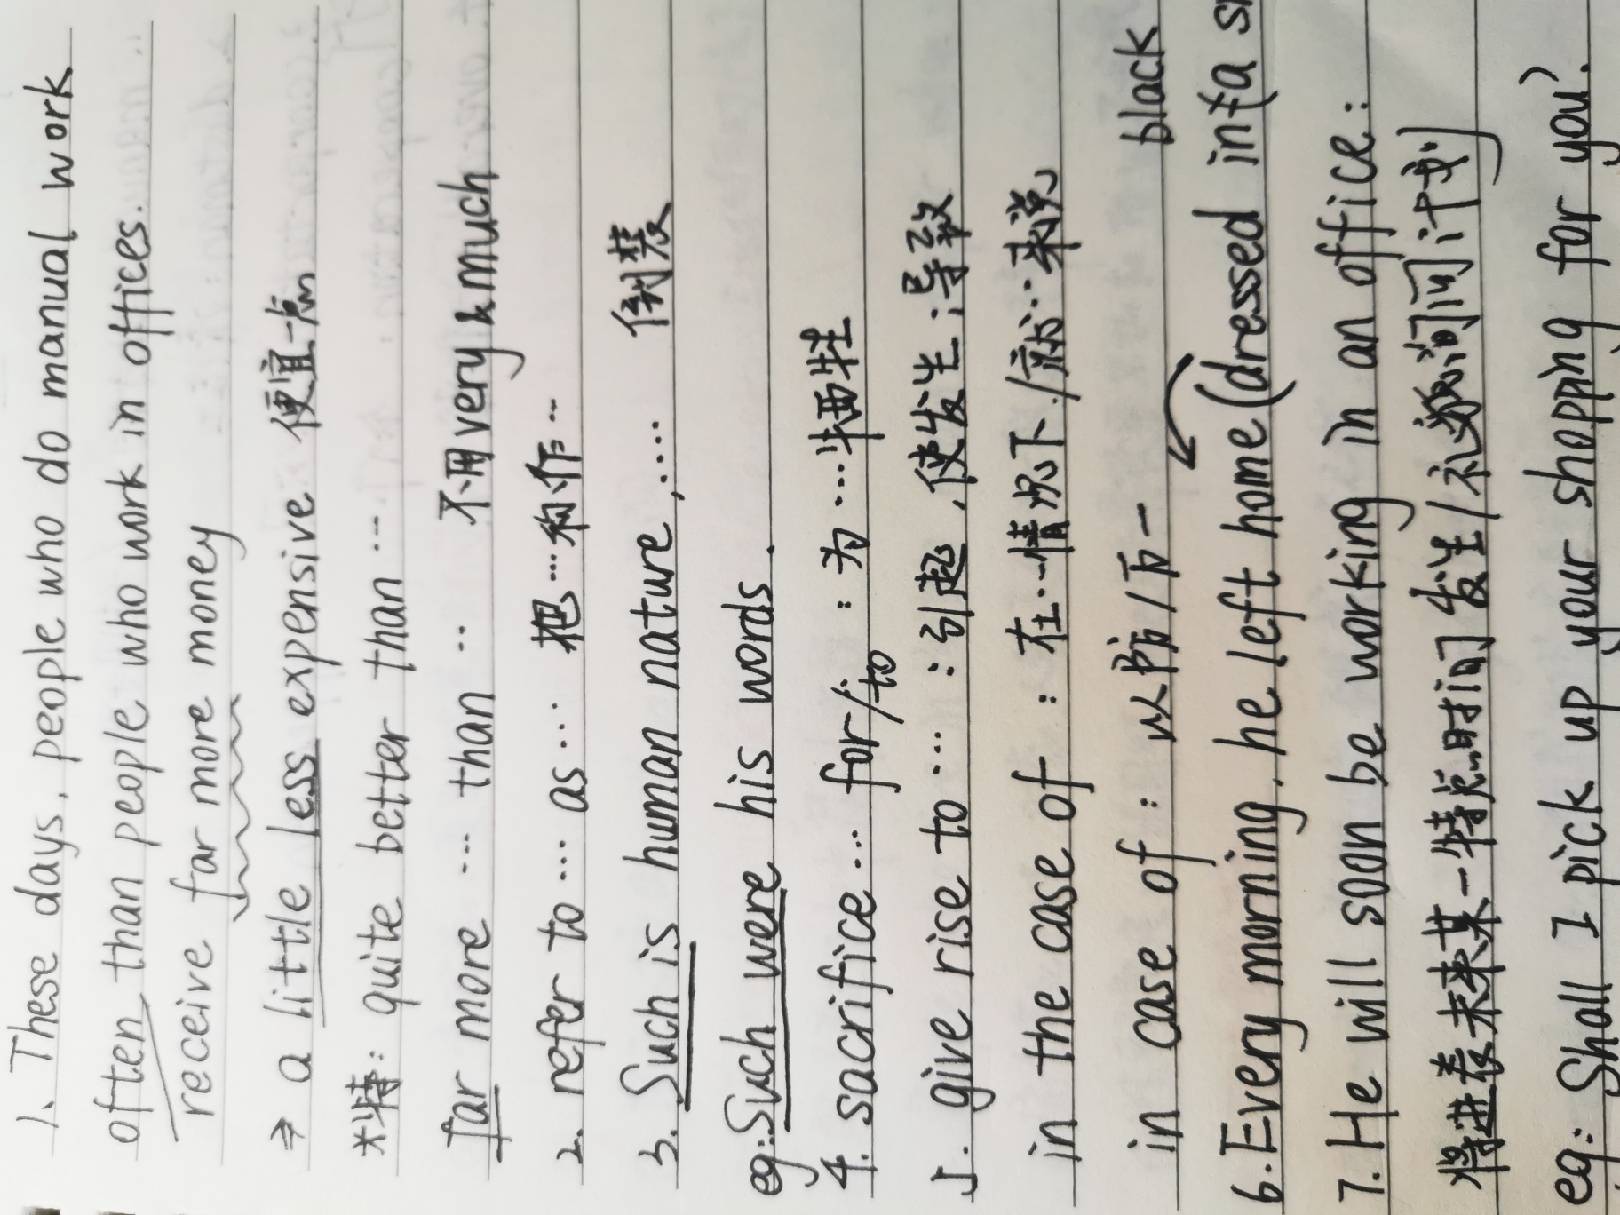 1. These days, people who do manual work
often than people who work in offices.
receive far more money
⇒ a little less expensive 便宜一点
*特: quite better than …
far more … than … 不用very & much
2. refer to … as … 把…称作…
3. Such is human nature, …. 倒装
eg: Such were his words.
4. sacrifice … for/to : 为…牺牲
5. give rise to … : 引起,使发生;导致
in the case of : 在…情况下/就…来说
in case of : 以防/万一
black
6. Every morning, he left home (dressed in {a s
7. He will soon be working in an office:
将进表未来某一特定时间发生/
eg: Shall I pick up your shopping for you?